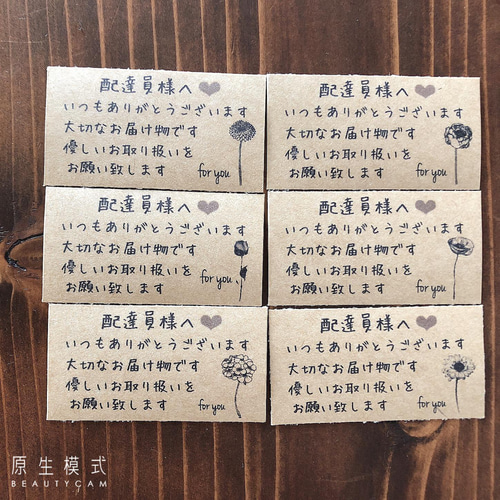 配達員様へ
いつもありがとうございます
大切なお届け物です
優しいお取り扱いを
お願い致します
for you
配達員様へ
いつもありがとうございます
大切なお届け物です
優しいお取り扱いを
お願い致します
for you
配達員様へ
いつもありがとうございます
大切なお届け物です
優しいお取り扱いを
お願い致します
for you
配達員様へ
いつもありがとうございます
大切なお届け物です
優しいお取り扱いを
お願い致します
for you
配達員様へ
いつもありがとうございます
大切なお届け物です
優しいお取り扱いを
お願い致します
for you
配達員様へ
いつもありがとうございます
大切なお届け物です
優しいお取り扱いを
お願い致します
for you
原生模式
BEAUTYCAM